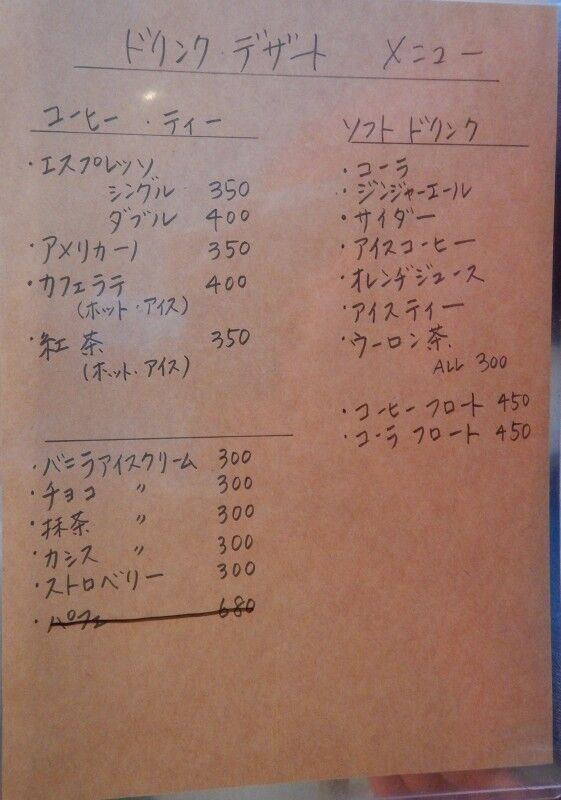 ドリンク・デザート メニュー
コーヒー・ティー
・エスプレッソ
シングル 350
ダブル 400
・アメリカーノ 350
・カフェラテ 400
(ホット・アイス)
・紅茶 350
(ホット・アイス)
・バニラアイスクリーム 300
・チョコ 〃 300
・抹茶 〃 300
・カシス 〃 300
・ストロベリー 300
・パフェ 680
ソフトドリンク
・コーラ
・ジンジャーエール
・サイダー
・アイスコーヒー
・オレンヂジュース
・アイスティー
・ウーロン茶
ALL 300
・コーヒーフロート 450
・コーラフロート 450